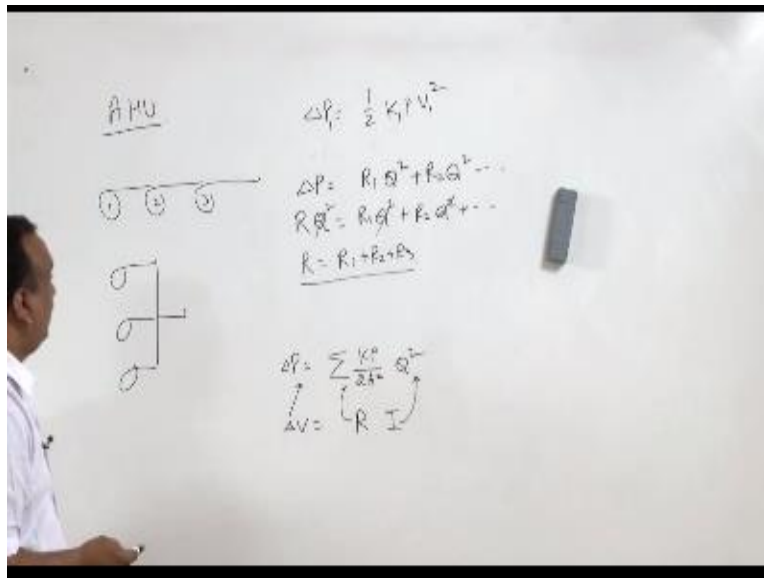 AHU
ΔP₁ = 1/2 K₁ ρ V₁²
① ② ③
ΔP = R₁Q² + R₂Q² ---
RQ² = R₁Q² + R₂Q² + --
R = R₁+R₂+R₃
ΔP = Σ Kρ/2A² Q²
ΔV = R I